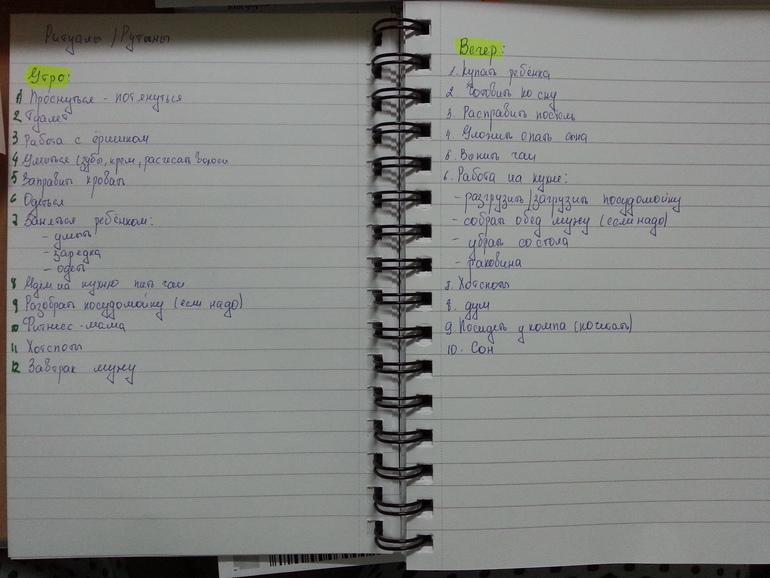 Ритуалы / Рутины
Утро:
1 Проснуться - потянуться
2 Туалет
3 Работа с ёршиком
4 Умыться (зубы, крем, расчесать волосы
5 Заправить кровать
6 Одеться
7 Заняться ребёнком:
- умыть
- зарядка
- одеть
8 Идём на кухню пить чай
9 Разобрать посудомойку (если надо)
10 Фитнес-мама
11 Хотспоты
12 Завтрак мужу
Вечер:
1. Купать ребёнка
2 Готовить ко сну
3. Расправить постель
4. Уложить спать сына
5. Попить чай
6. Работа на кухне:
- разгрузить/загрузить посудомойку
- собрать обед мужу (если надо)
- убрать со стола
- раковина
7. Хотспоты
8. душ
9. Посидеть у компа (почитать)
10. Сон